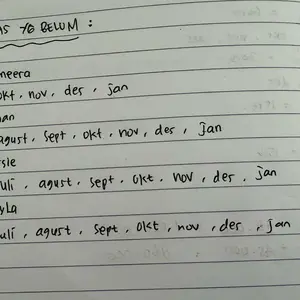 AS YG BELUM :
meera
okt, nov, des, jan
an
agust, sept, okt, nov, des, jan
sie
uli, agust, sept, okt, nov, des, jan
yla
uli, agust, sept, okt, nov, des, jan